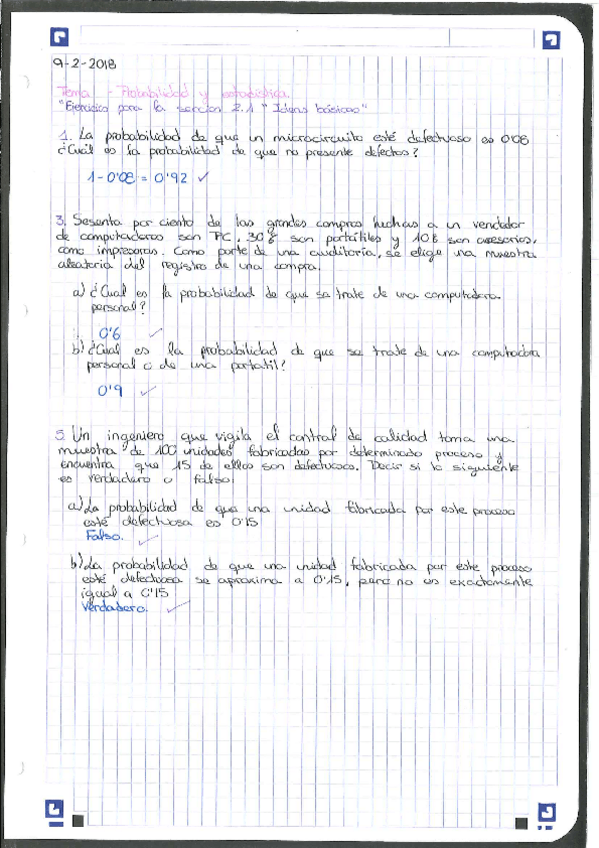 9-2-2018
Tema - Probabilidad y estadística.
"Ejercicios para la sección 2.1 "Ideas básicas"
1. La probabilidad de que un microcircuito esté defectuoso es 0'08
¿Cuál es la probabilidad de que no presente defectos?
1-0'08 = 0'92 ✓
3. Sesenta por ciento de las grandes compras hechas a un vendedor
de computadoras son PC, 30% son portátiles y 10% son accesorios,
como impresoras. Como parte de una auditoría, se elige una muestra
aleatoria del registro de una compra.
a) ¿Cual es la probabilidad de que se trate de una computadora
personal?
0'6 ✓
b) ¿Cual es la probabilidad de que se trate de una computadora
personal o de una portatil?
0'9 ✓
5. Un ingeniero que vigila el control de calidad toma una
muestra de 100 unidades fabricadas por determinado proceso y
encuentra que 15 de ellos son defectuosos. Decir si lo siguiente
es verdadero o falso.
a) La probabilidad de que una unidad fabricada por este proceso
esté defectuosa es 0'15
Falso. ✓
b) La probabilidad de que una unidad fabricada por este proceso
esté defectuosa se aproxima a 0'15, pero no es exactamente
igual a 0'15
Verdadero. ✓